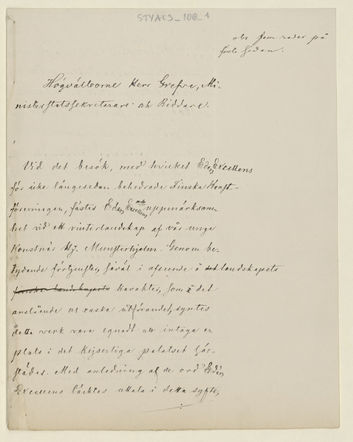 STYACS_108_1
obs fem rader på
första sedan.
Högvälborne Herr Grefve, Mi-
nisterstatssekreterare och Riddare.
Vid det besök, med hvilket Eders Excellens
för icke längesedan behedrade Finska Konst-
föreningen, fästes Eders Excellens uppmärksam-
het vid ett vinterlandskap af vår unge
Konstnär Hj. Munsterhjelm. Genom be-
tydande förtjenster, såväl i afseende å landskapets
finska landskapets karakter, som i det
anslående och vackra utförandet, syntes
detta verk vara egnadt att intaga en
plats i det Kejserliga palatset här-
städes. Med anledning af de ord Eders
Excellens täcktes uttala i detta syfte,